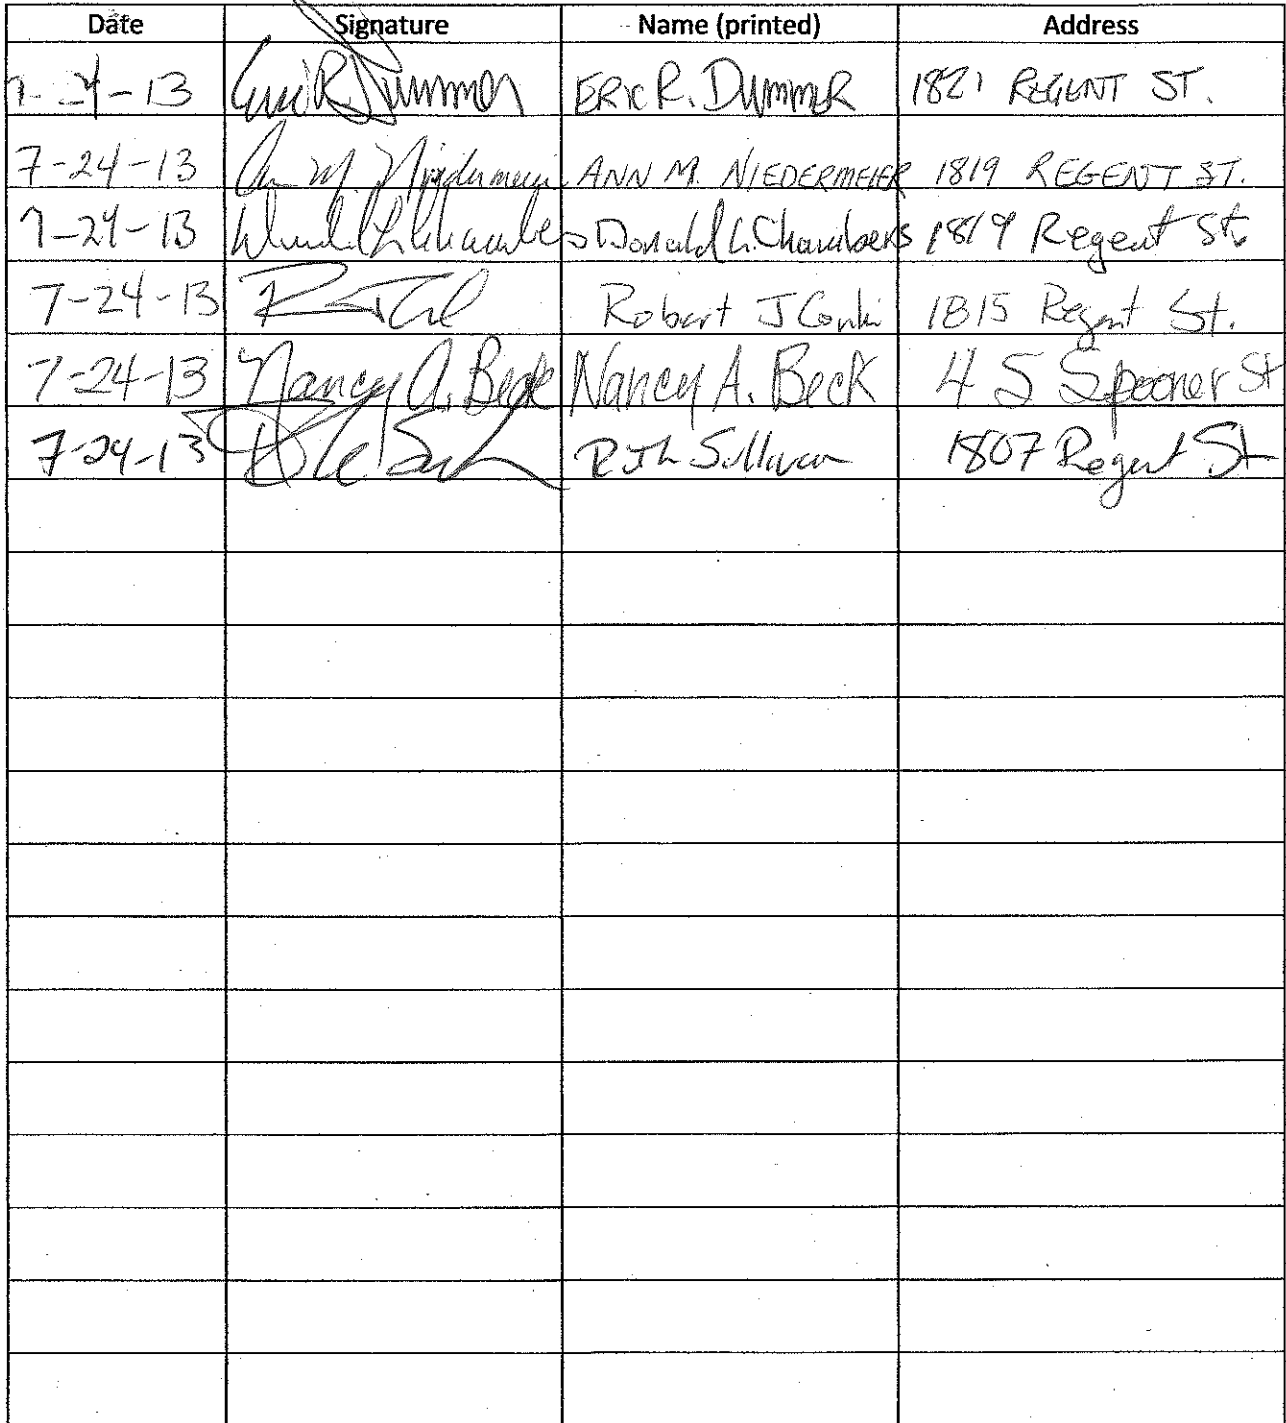 Date Signature Name (printed) Address
7-24-13 Eric R. Dummer ERIC R. DUMMER 1821 REGENT ST.
7-24-13 Ann M. Niedermeier ANN M. NIEDERMEIER 1819 REGENT ST.
7-24-13 Donald L Chambers Donald L. Chambers 1819 Regent St.
7-24-13 Robert J 1815 Regent St.
7-24-13 Nancy A. Beck Nancy A. Beck 4 S Spooner St
7-24-13 Ruth Sullivan 1807 Regent St